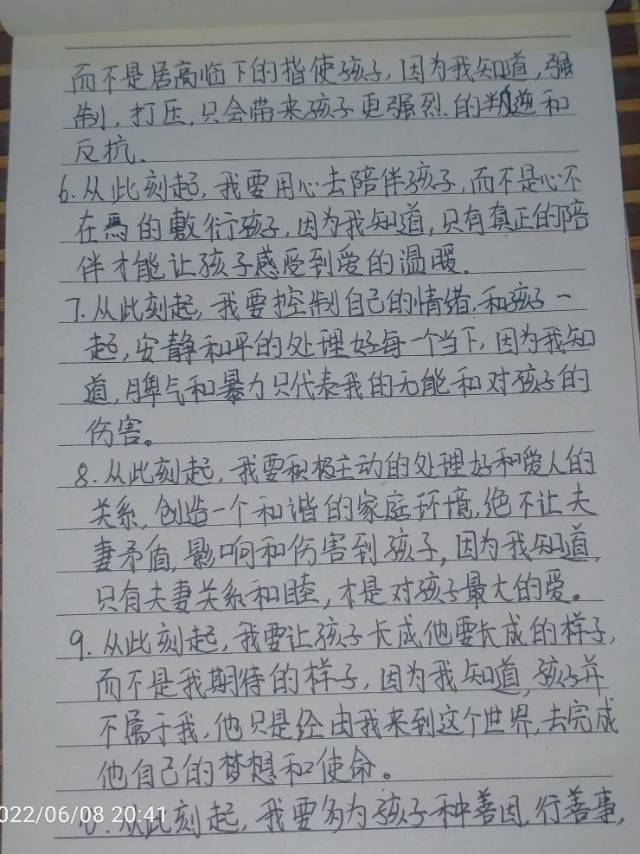 而不是居高临下的指使孩子,因为我知道,强
制,打压,只会带来孩子更强烈的叛逆和
反抗.
6.从此刻起,我要用心去陪伴孩子,而不是心不
在焉的敷衍孩子,因为我知道,只有真正的陪
伴才能让孩子感受到爱的温暖.
7.从此刻起,我要控制自己的情绪,和孩子一
起,安静和平的处理好每一个当下,因为我知
道,脾气和暴力只代表我的无能和对孩子的
伤害。
8.从此刻起,我要积极主动的处理好和爱人的
关系,创造一个和谐的家庭环境,绝不让夫
妻矛盾,影响和伤害到孩子,因为我知道,
只有夫妻关系和睦,才是对孩子最大的爱。
9.从此刻起,我要让孩子长成他要长成的样子,
而不是我期待的样子,因为我知道,孩子并
不属于我,他只是经由我来到这个世界,去完成
他自己的梦想和使命。
从此刻起,我要多为孩子种善因,行善事,
022/06/08 20:41